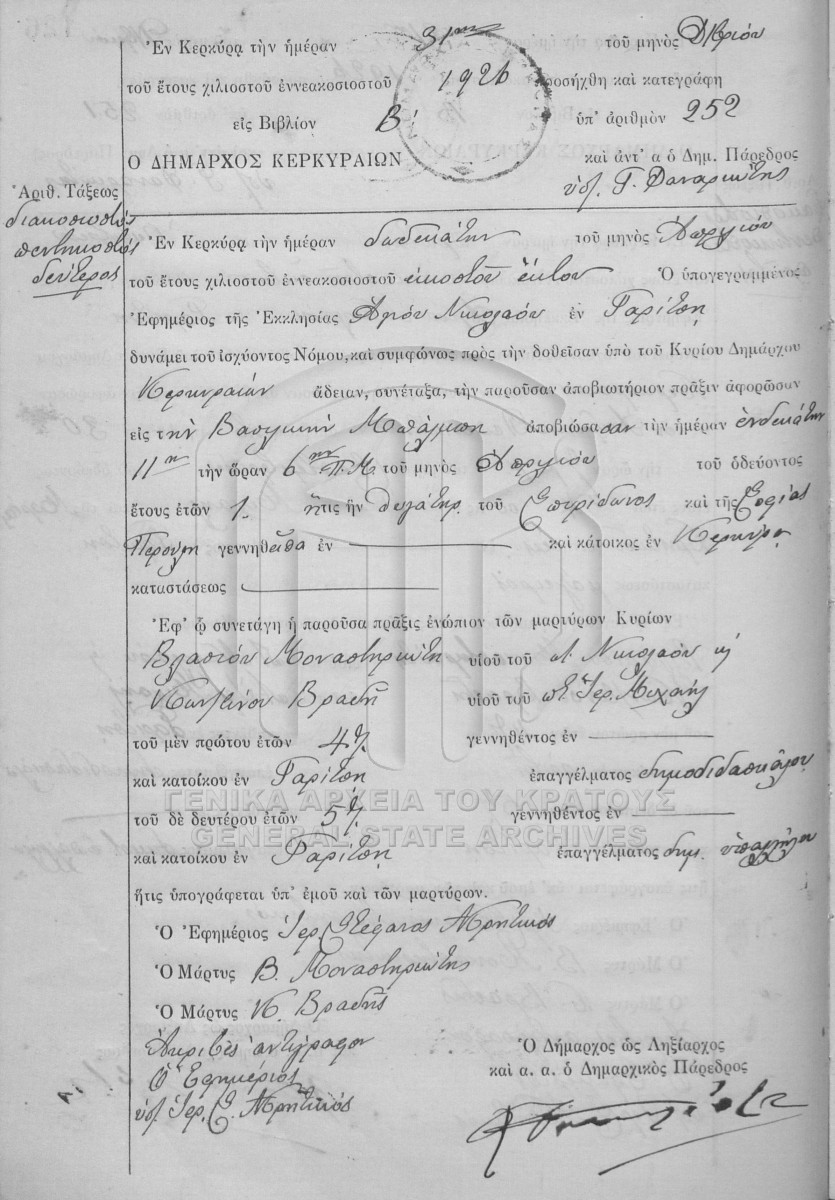 Ἐν Κερκύρᾳ τὴν ἡμέραν 31ην τοῦ μηνὸς Δ/βρίου
τοῦ ἔτους χιλιοστοῦ ἐννεακοσιοστοῦ 1926 προσήχθη καὶ κατεγράφη
εἰς Βιβλίον Β' ὑπ' ἀριθμὸν 252
Ο ΔΗΜΑΡΧΟΣ ΚΕΡΚΥΡΑΙΩΝ καὶ ἀντ' α ὁ Δημ. Πάρεδρος
ὑπ. Γ. Φαναριώτης
Ἀριθ. Τάξεως
διακοσιοστός
πεντηκοστός
δεύτερος
Ἐν Κερκύρᾳ τὴν ἡμέραν δωδεκάτην τοῦ μηνὸς Ἀπριλίου
τοῦ ἔτους χιλιοστοῦ ἐννεακοσιοστοῦ εἰκοστοῦ ἕκτου Ὁ ὑπογεγραμμένος
Ἐφημέριος τῆς Ἐκκλησίας Ἁγίου Νικολάου ἐν Γαρίτσῃ
δυνάμει τοῦ ἰσχύοντος Νόμου, καὶ συμφώνως πρὸς τὴν δοθεῖσαν ὑπὸ τοῦ Κυρίου Δημάρχου
Κερκυραίων ἄδειαν, συνέταξα, τὴν παροῦσαν ἀποβιωτήριον πρᾶξιν ἀφορῶσαν
εἰς τὴν Βασιλικὴν Μπάλμπη ἀποβιώσασαν τὴν ἡμέραν ἑνδεκάτην
11ην τὴν ὥραν 6ην Π.Μ. τοῦ μηνὸς Ἀπριλίου τοῦ ὁδεύοντος
ἔτους ἐτῶν 1. ἥτις ἦν θυγάτηρ τοῦ Σπυρίδωνος καὶ τῆς Σοφίας
Περούλη γεννηθεῖσα ἐν καὶ κάτοικος ἐν Κερκύρᾳ
καταστάσεως
Ἐφ' ᾧ συνετάγη ἡ παροῦσα πρᾶξις ἐνώπιον τῶν μαρτύρων Κυρίων
Βλασίου Μοναστηριώτη υἱοῦ τοῦ π. Νικολάου κ
Κων/τίνου Βραδῆ υἱοῦ τοῦ π. Ἱερ. Μιχαήλ
τοῦ μὲν πρώτου ἐτῶν 47 γεννηθέντος ἐν
καὶ κατοίκου ἐν Γαρίτσῃ ἐπαγγέλματος δημοδιδασκάλου
ΓΕΝΙΚΑ ΑΡΧΕΙΑ ΤΟΥ ΚΡΑΤΟΥΣ
τοῦ δὲ δευτέρου ἐτῶν 57 γεννηθέντος ἐν
GENERAL STATE ARCHIVES
καὶ κατοίκου ἐν Γαρίτσῃ ἐπαγγέλματος δημ. ὑπαλλήλου
ἥτις ὑπογράφεται ὑπ' ἐμοῦ καὶ τῶν μαρτύρων.
Ὁ Ἐφημέριος Ἱερ. Στέφανος Κρητικός
Ὁ Μάρτυς Β. Μοναστηριώτης
Ὁ Μάρτυς Κ. Βραδῆς
Ἀκριβὲς ἀντίγραφον
Ὁ Ἐφημέριος
ὑπ. Ἱερ. Σ. Κρητικός
Ὁ Δήμαρχος ὡς Ληξίαρχος
καὶ α. α. ὁ Δημαρχικὸς Πάρεδρος